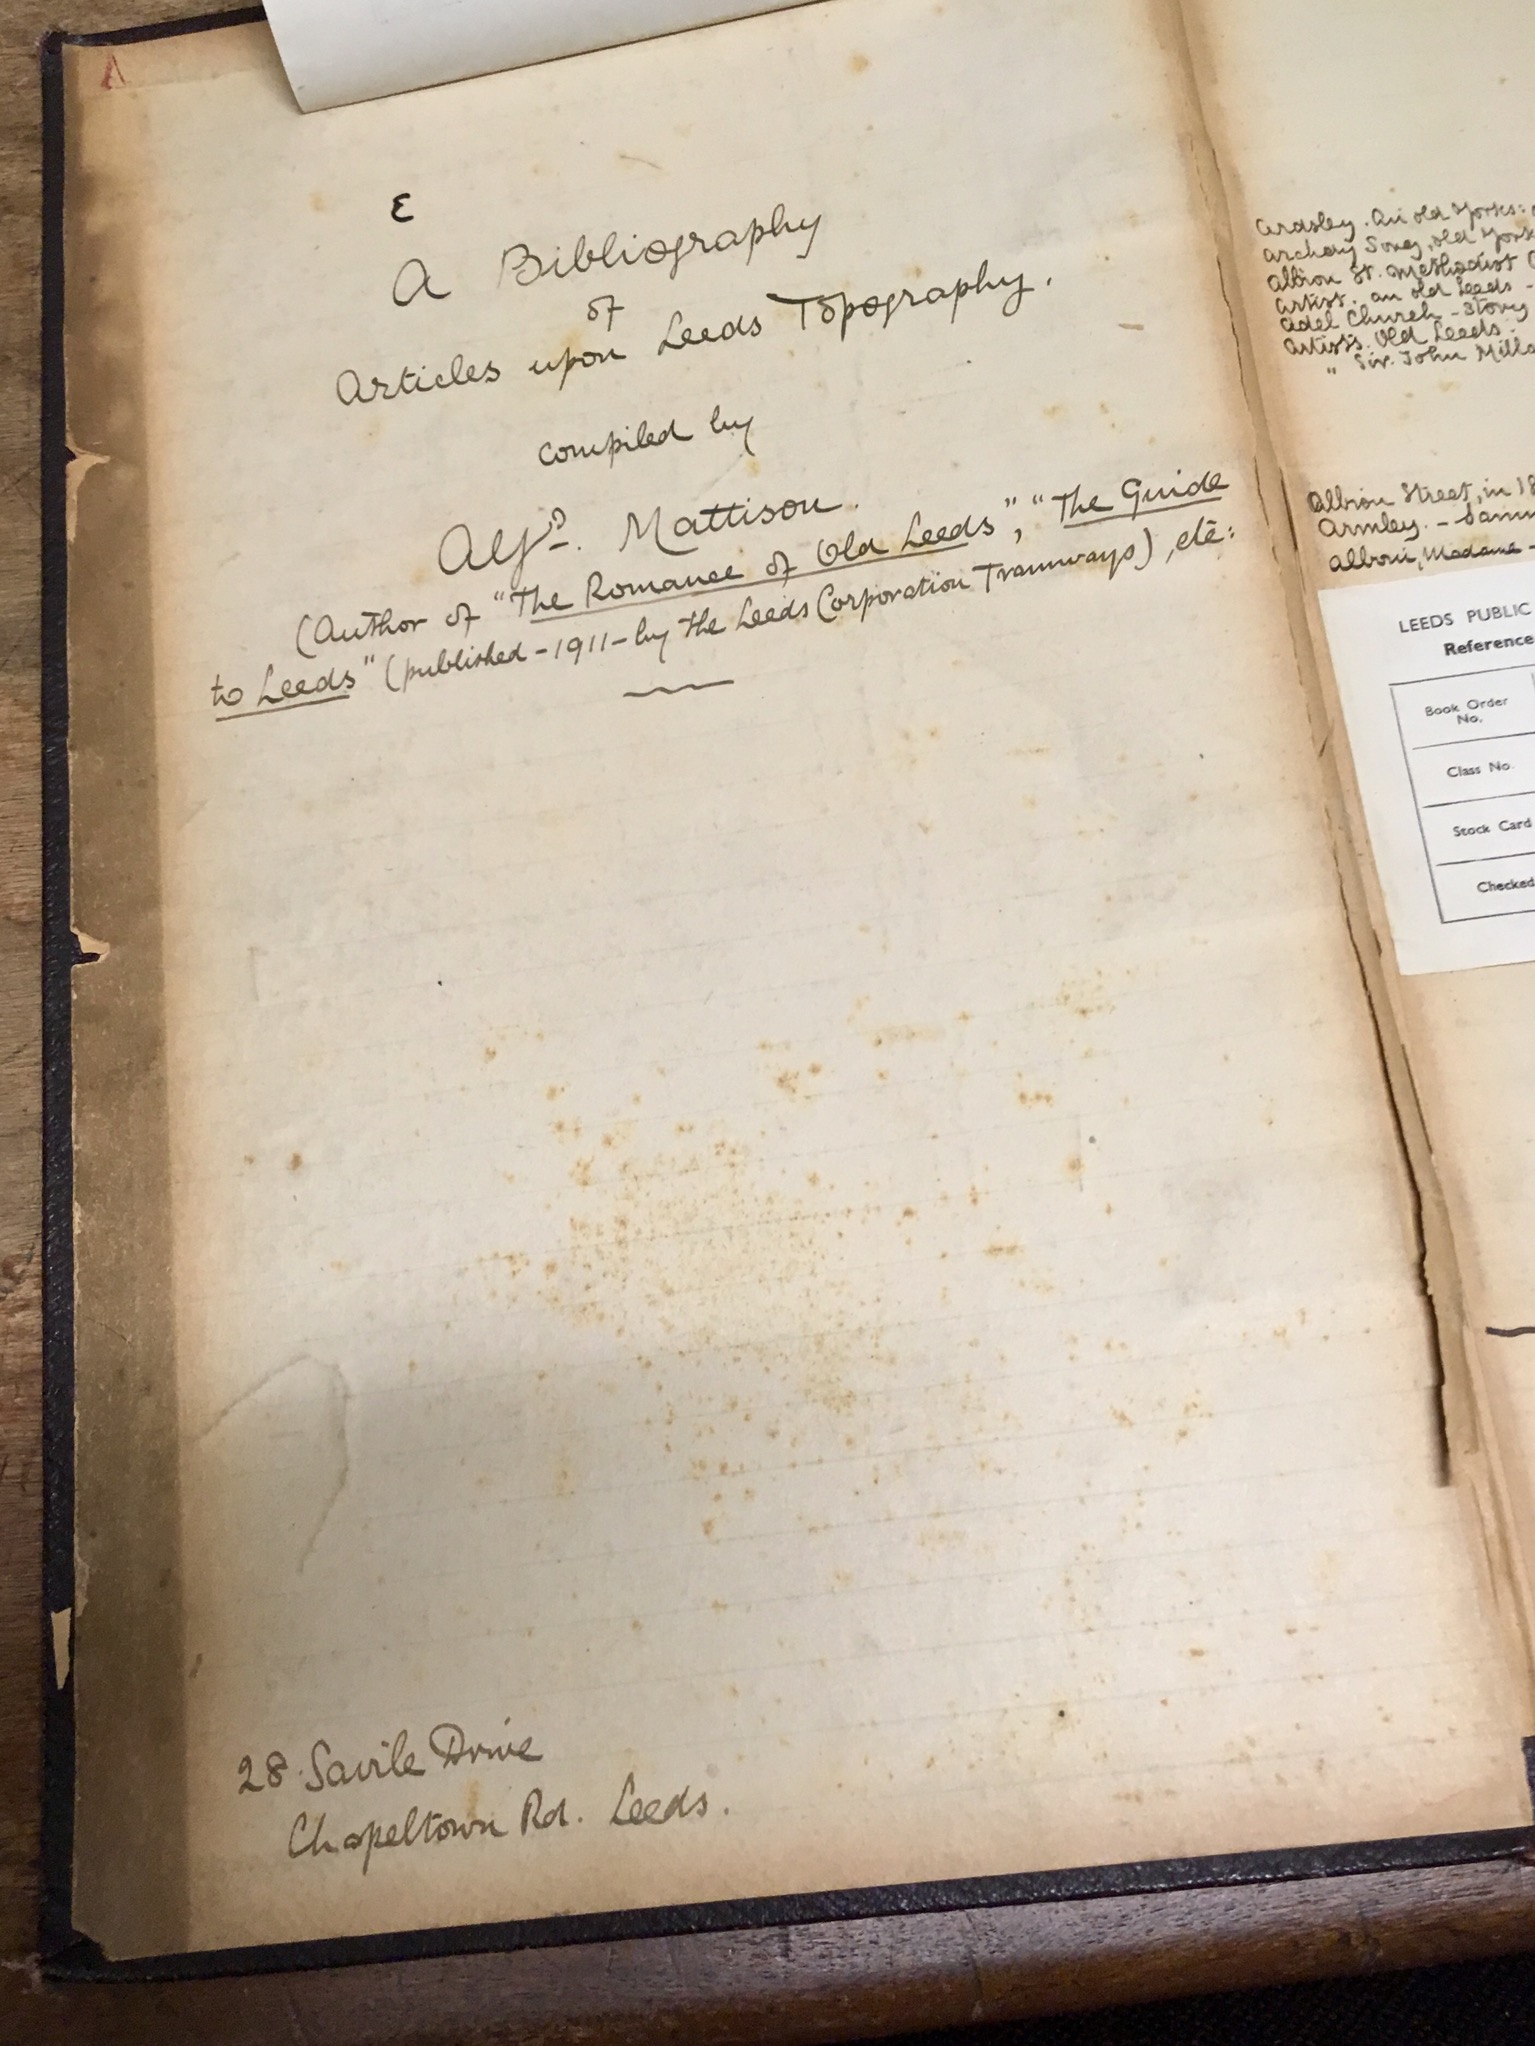 ε
A Bibliography
of
Articles upon Leeds Topography.
compiled by
Alfd. Mattison.
(Author of "The Romance of Old Leeds", "The Guide
to Leeds" (published - 1911 - by the Leeds Corporation Tramways), etc:
28 Savile Drive
Chapeltown Rd. Leeds.
Ardsley. An old Yorks:
Archery Song, old York
Albion St. Methodist
Artist. an old Leeds -
Adel Church - Story
Artists. Old Leeds.
" Sir. John Milla
Albion Street, in 18
Armley. - Samu
Alboni, Madame -
LEEDS PUBLIC
Reference
Book Order
No.
Class No.
Stock Card
Checked